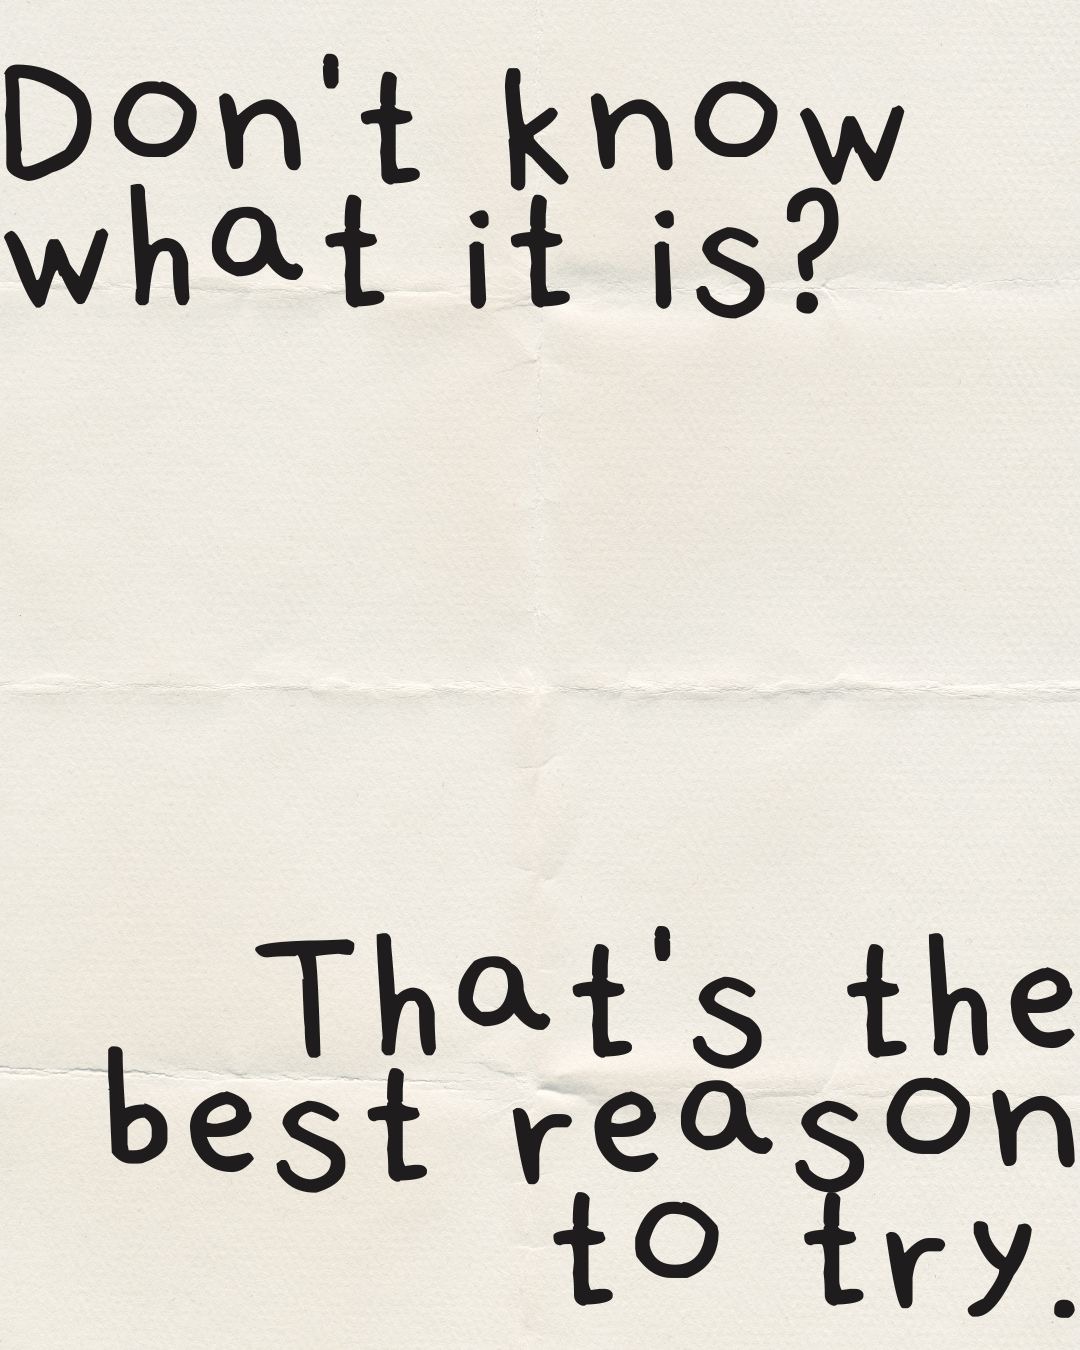 Don't know
what it is?
That's the
best reason
to try.